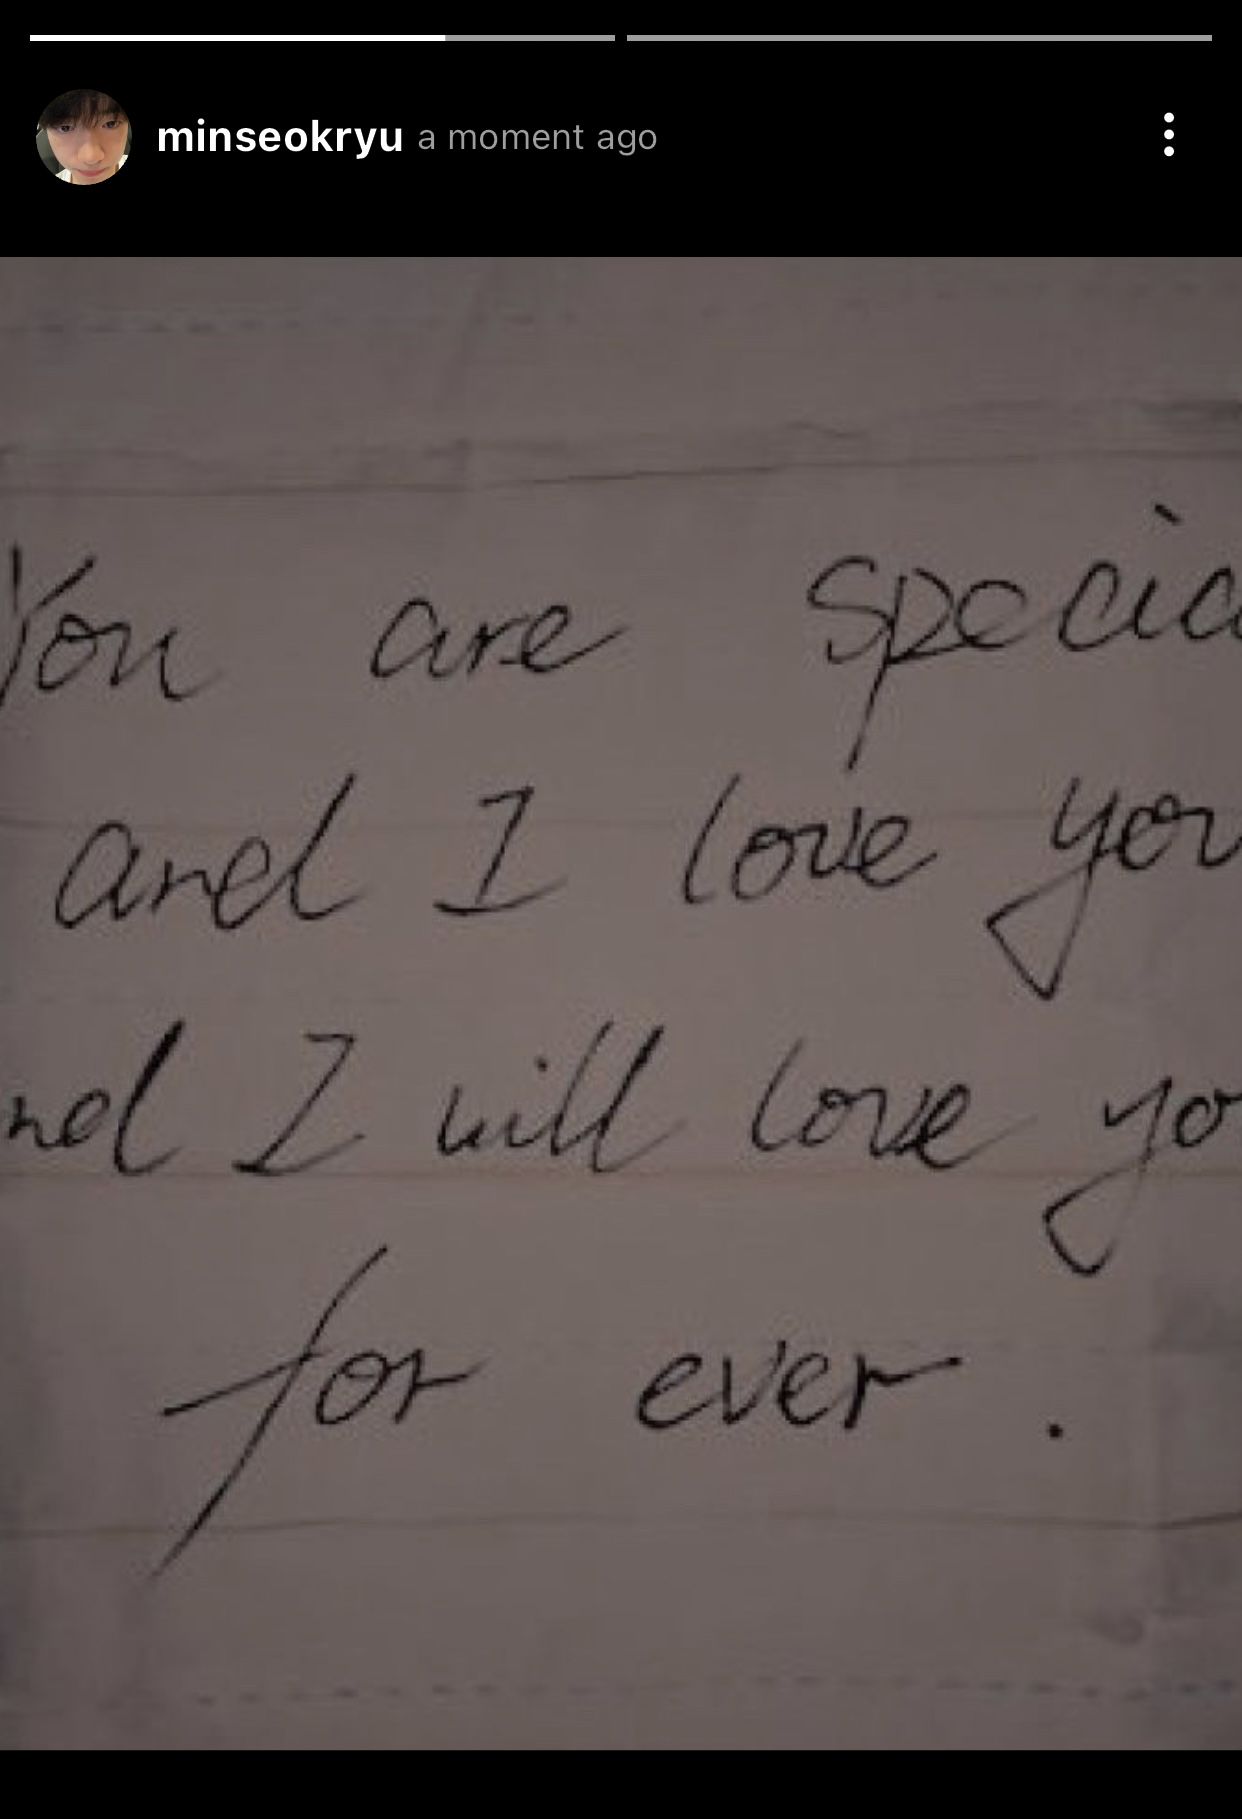 minseokryu a moment ago
You are specia
and I love you
nd I will love yo
for ever.